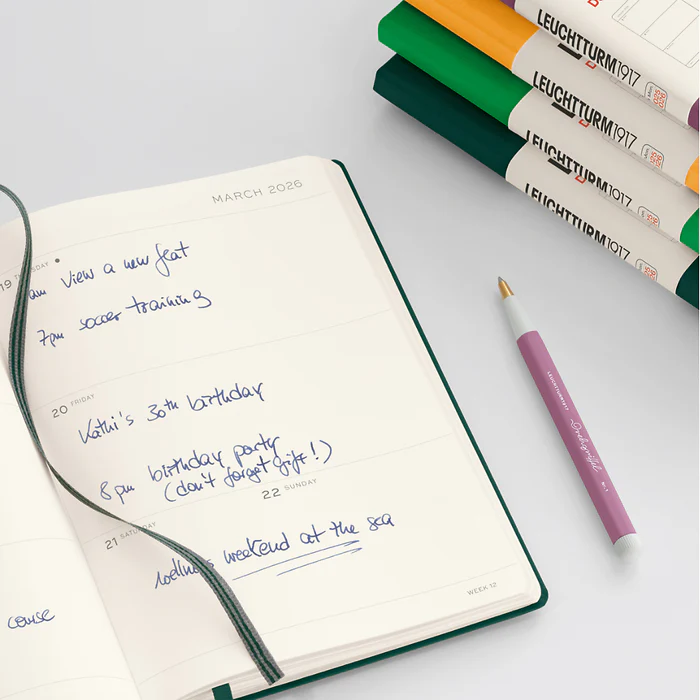 MARCH 2026
19 THURSDAY
am view a new flat
7pm soccer training
20 FRIDAY
Kathi's 30th birthday
8pm birthday party
(don't forget gift!)
21 SATURDAY
22 SUNDAY
wellness weekend at the sea
WEEK 12
course
LEUCHTTURM1917
LEUCHTTURM1917
LEUCHTTURM1917
LEUCHTTURM1917
LEUCHTTURM1917
Drehgriffel
Nr. 1